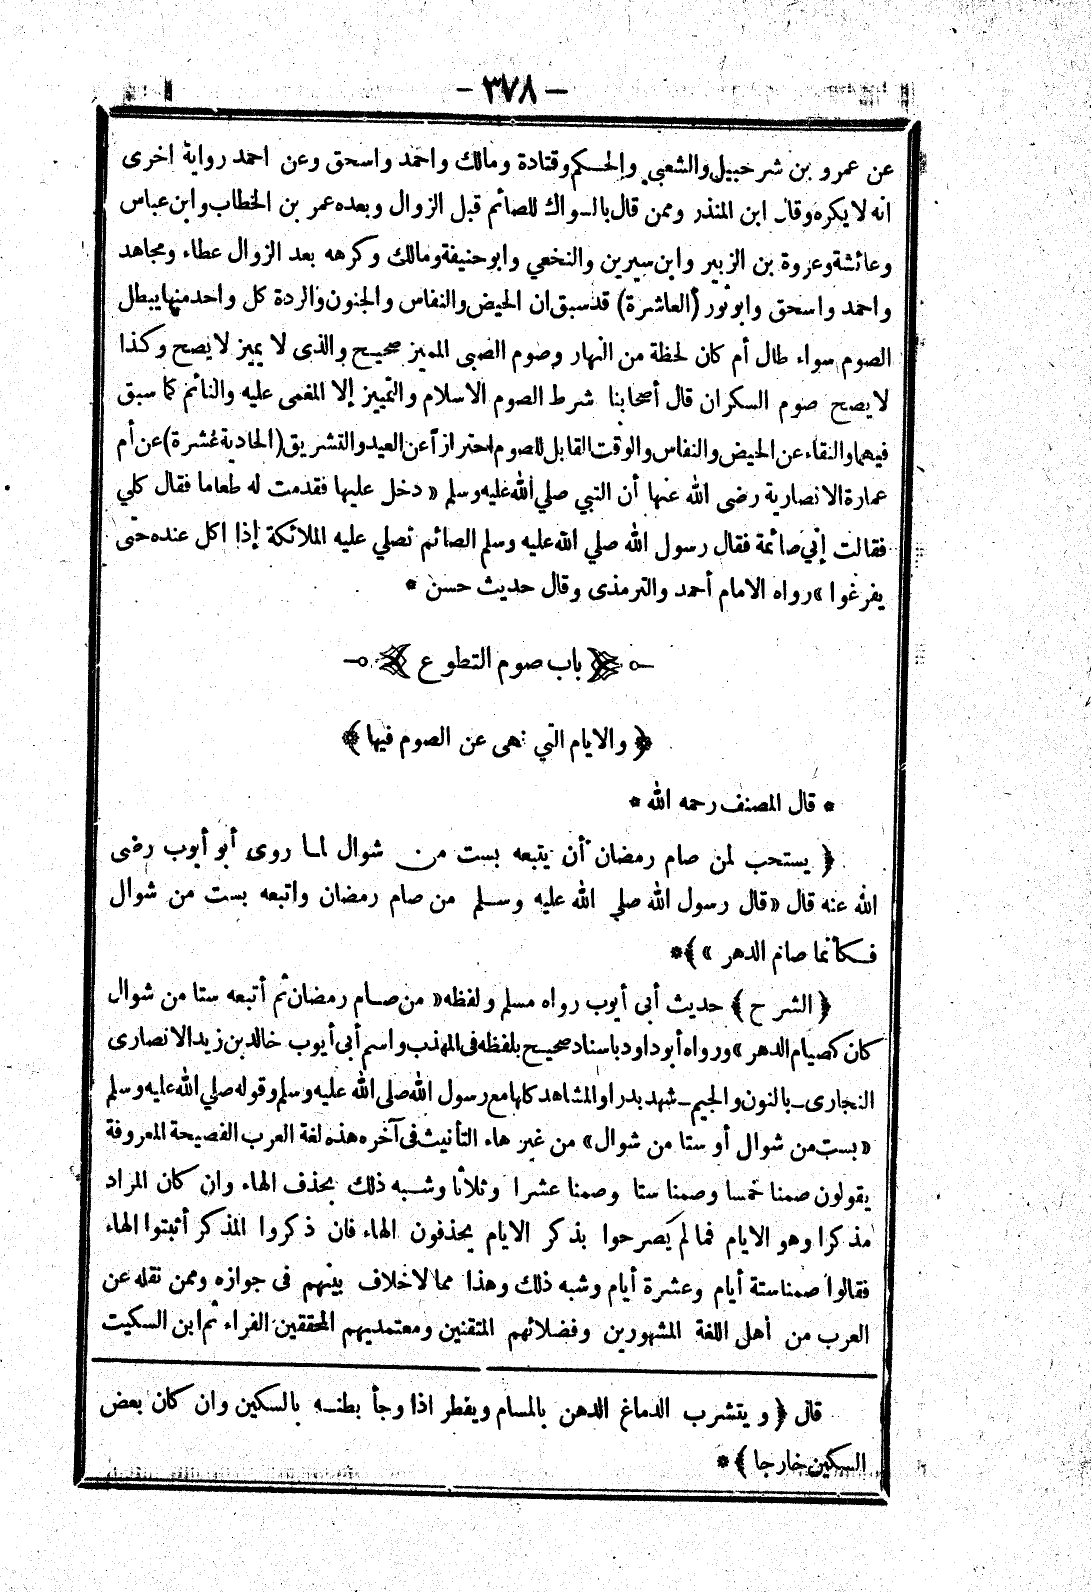 — ٣٧٨ —
عن عمرو بن شرحبيل والشعبي والحكم وقتادة ومالك واحمد واسحق وعن احمد رواية اخرى
انه لا يكره وقال ابن المنذر وممن قال بالسواك للصائم قبل الزوال وبعده عمر بن الخطاب وابن عباس
وعائشة وعروة بن الزبير وابن سيرين والنخعي وابو حنيفة ومالك وكرهه بعد الزوال عطاء ومجاهد
واحمد واسحق وابو ثور (العاشرة) قد سبق ان الحيض والنفاس والجنون والردة كل واحد منها يبطل
الصوم سواء طال أم كان لحظة من النهار وصوم الصبى المميز صحيح والذى لا يميز لا يصح وكذا
لا يصح صوم السكران قال أصحابنا شرط الصوم الاسلام والتمييز إلا المغمى عليه والنائم كما سبق
فيهما والنقاء عن الحيض والنفاس والوقت القابل للصوم احترازاً عن العيد والتشريق (الحادية عشرة) عن أم
عمارة الانصارية رضى الله عنها أن النبي صلي الله عليه وسلم « دخل عليها فقدمت له طعاما فقال كلي
فقالت إني صائمة فقال رسول الله صلي الله عليه وسلم الصائم تصلي عليه الملائكة إذا اكل عنده حتى
يفرغوا » رواه الامام أحمد والترمذى وقال حديث حسن *
باب صوم التطوع
﴿ والايام التي نهى عن الصوم فيها ﴾
* قال المصنف رحمه الله *
﴿ يستحب لمن صام رمضان أن يتبعه بست من شوال لما روى أبو أيوب رضى
الله عنه قال « قال رسول الله صلي الله عليه وسلم من صام رمضان واتبعه بست من شوال
فكأنما صام الدهر » ﴾ *
﴿ الشرح ﴾ حديث أبى أيوب رواه مسلم ولفظه « من صام رمضان ثم أتبعه ستا من شوال
كان كصيام الدهر » ورواه أبو داود باسناد صحيح بلفظه فى المهذب واسم أبى أيوب خالد بن زيد الانصارى
النجارى ـ بالنون والجيم ـ شهد بدرا والمشاهد كلها مع رسول الله صلى الله عليه وسلم وقوله صلي الله عليه وسلم
« بست من شوال أو ستا من شوال » من غير هاء التأنيث فى آخره هذه لغة العرب الفصيحة المعروفة
يقولون صمنا خمسا وصمنا ستا وصمنا عشرا وثلاثا وشبه ذلك بحذف الهاء وان كان المراد
مذكرا وهو الايام فما لم يصرحوا بذكر الايام يحذفون الهاء فان ذكروا المذكر أثبتوا الهاء
فقالوا صمنا ستة أيام وعشرة أيام وشبه ذلك وهذا مما لا خلاف بينهم فى جوازه وممن نقله عن
العرب من أهل اللغة المشهورين وفضلائهم المتقنين ومعتمديهم المحققين الفراء ثم ابن السكيت
قال ﴿ ويتشرب الدماغ الدهن بالمسام ويفطر اذا وجأ بطنه بالسكين وان كان بعض
السكين خارجا ﴾ *